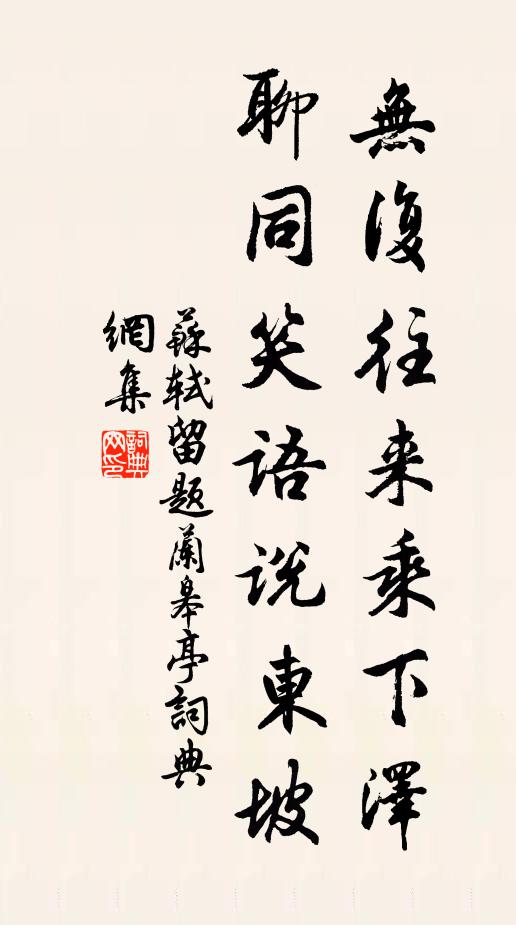 無復往来乘下澤
聊同笑語說東坡
蘇軾留題蘭皋亭詞典
網集
詞典
网印